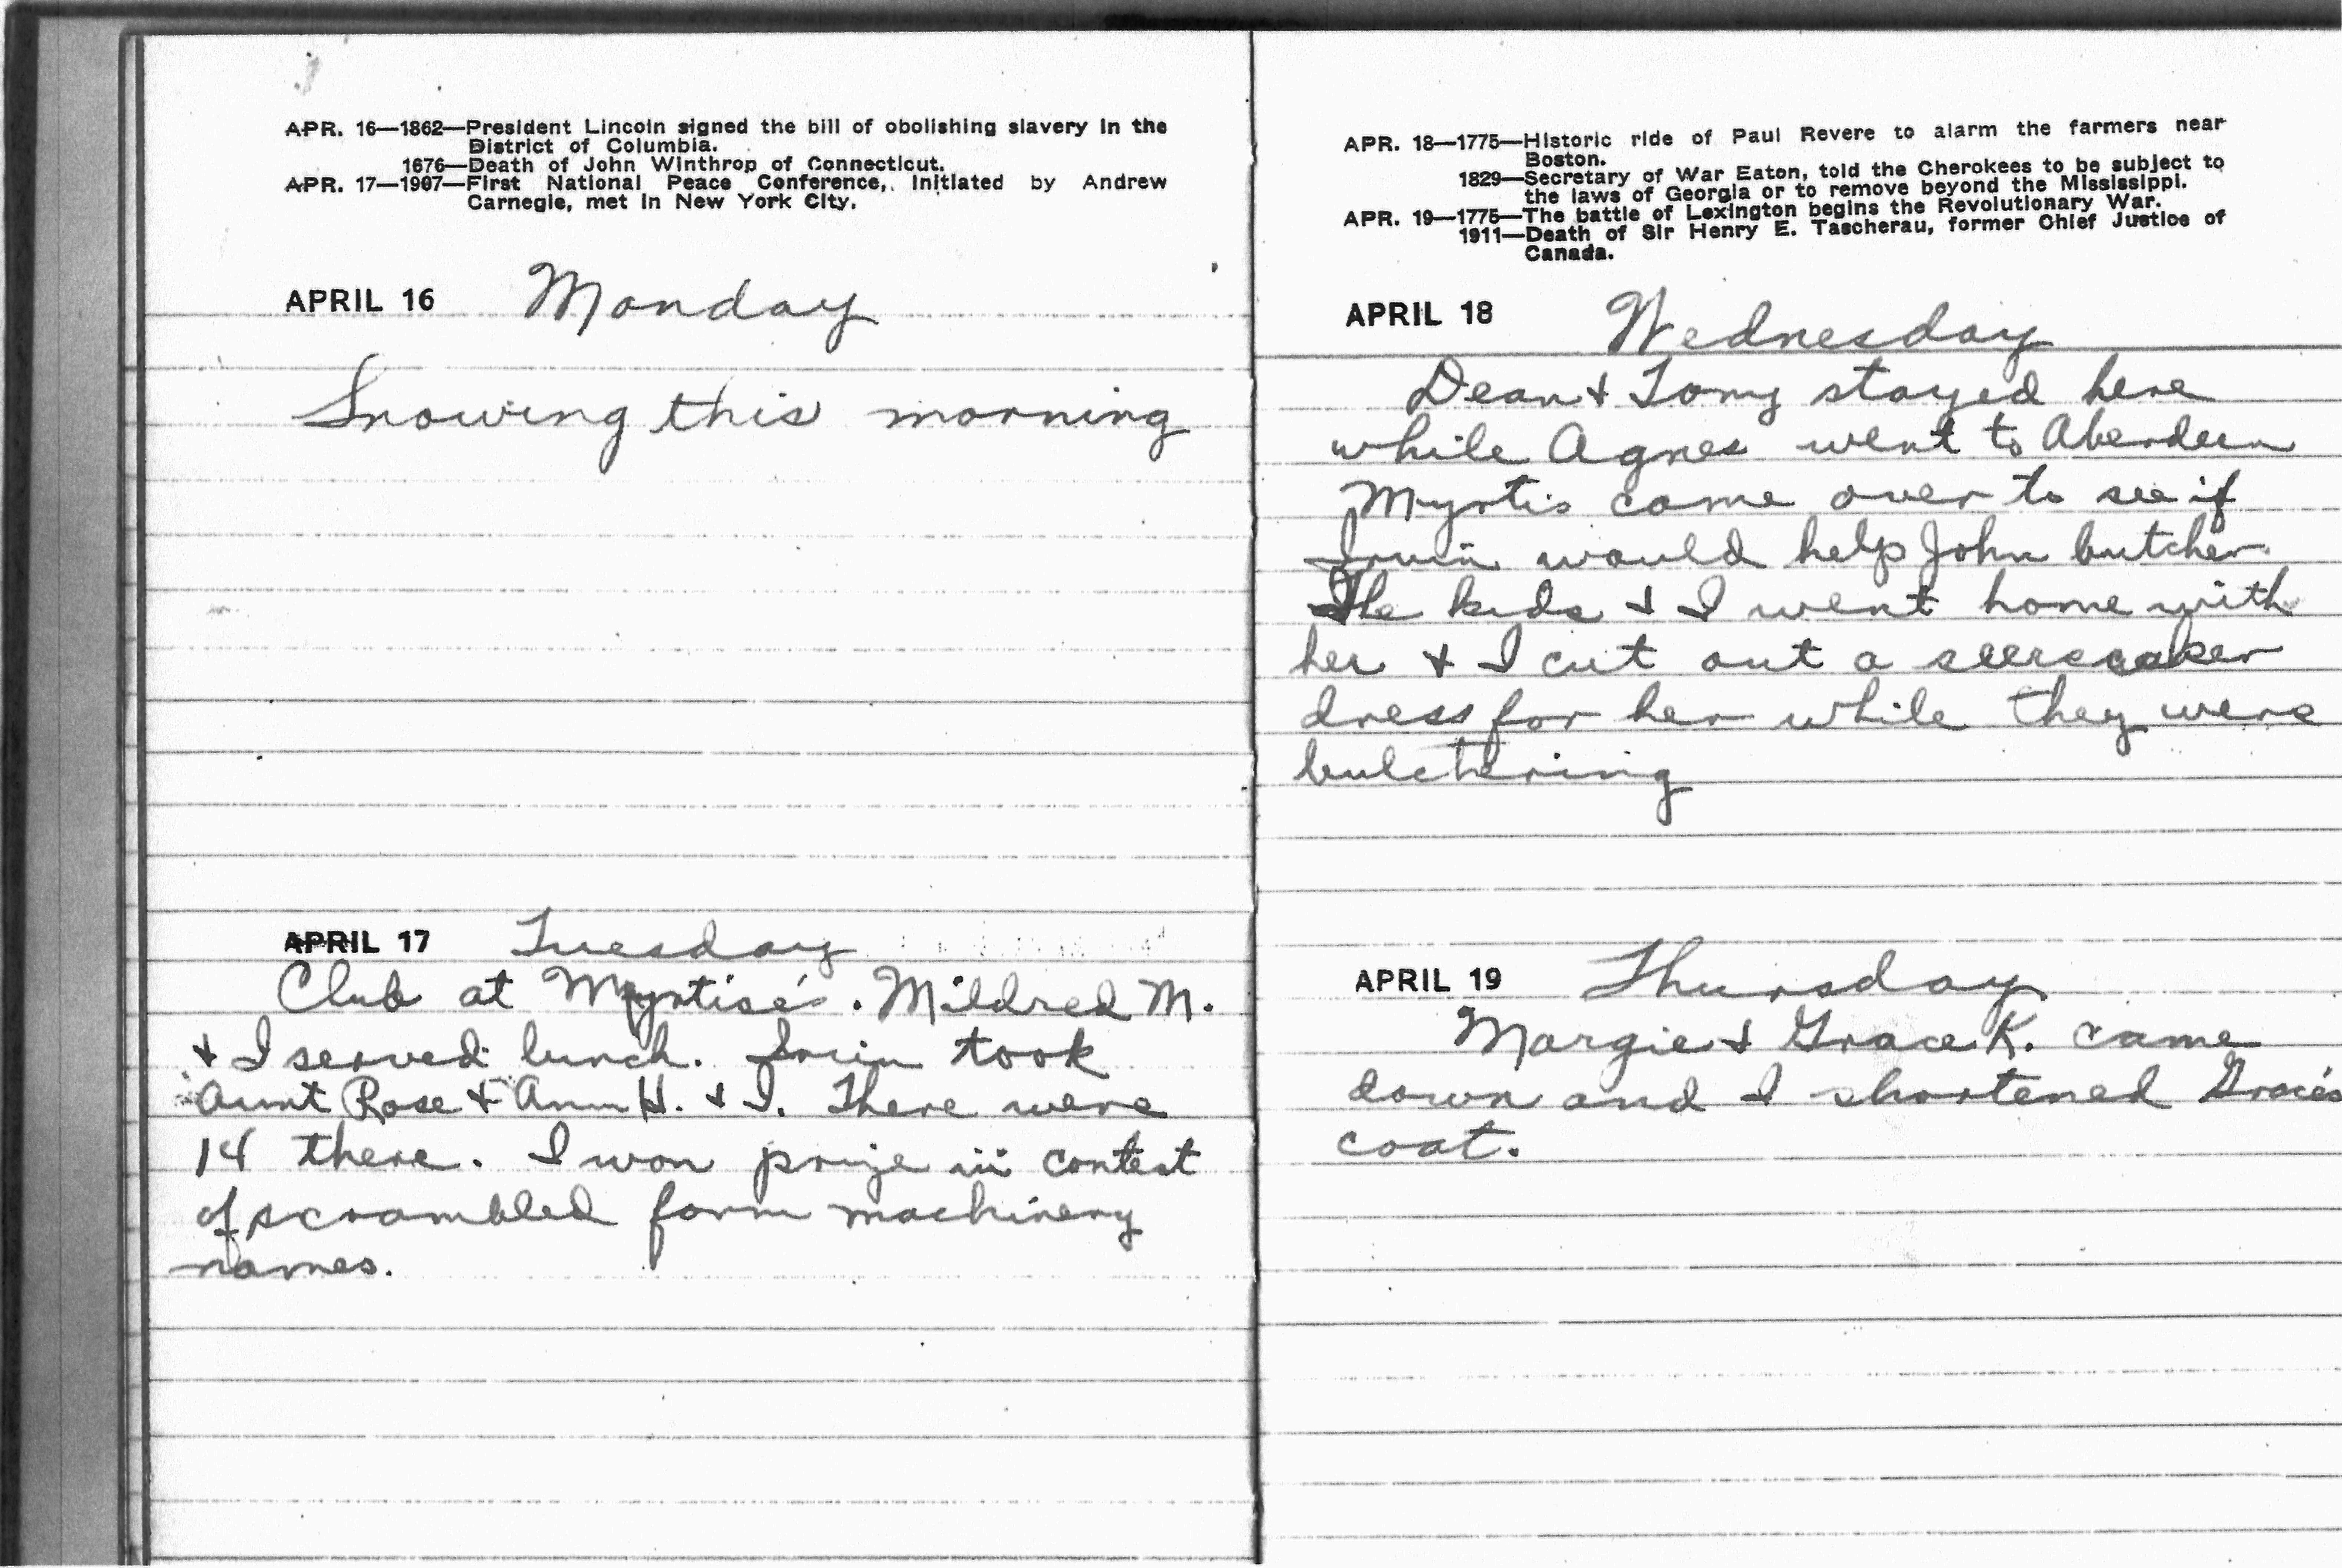 APR. 16—1862—President Lincoln signed the bill of obolishing slavery in the
District of Columbia.
1676—Death of John Winthrop of Connecticut.
APR. 17—1907—First National Peace Conference, initiated by Andrew
Carnegie, met in New York City.
APRIL 16 Monday
Snowing this morning
APRIL 17 Tuesday
Club at Myrtise's. Mildred M.
& I served lunch. Irwin took
Aunt Rose & Ann H. & I. There were
14 there. I won prize in contest
of scrambled farm machinery
names.
APR. 18—1775—Historic ride of Paul Revere to alarm the farmers near
Boston.
1829—Secretary of War Eaton, told the Cherokees to be subject to
the laws of Georgia or to remove beyond the Mississippi.
APR. 19—1775—The battle of Lexington begins the Revolutionary War.
1911—Death of Sir Henry E. Tascherau, former Chief Justice of
Canada.
APRIL 18 Wednesday
Dean & Tomy stayed here
while Agnes went to Aberdeen
Myrtis came over to see if
Irwin would help John butcher.
The kids & I went home with
her & I cut out a seersucker
dress for her while they were
butchering
APRIL 19 Thursday
Margie & Grace K. came
down and I shortened Grace's
coat.